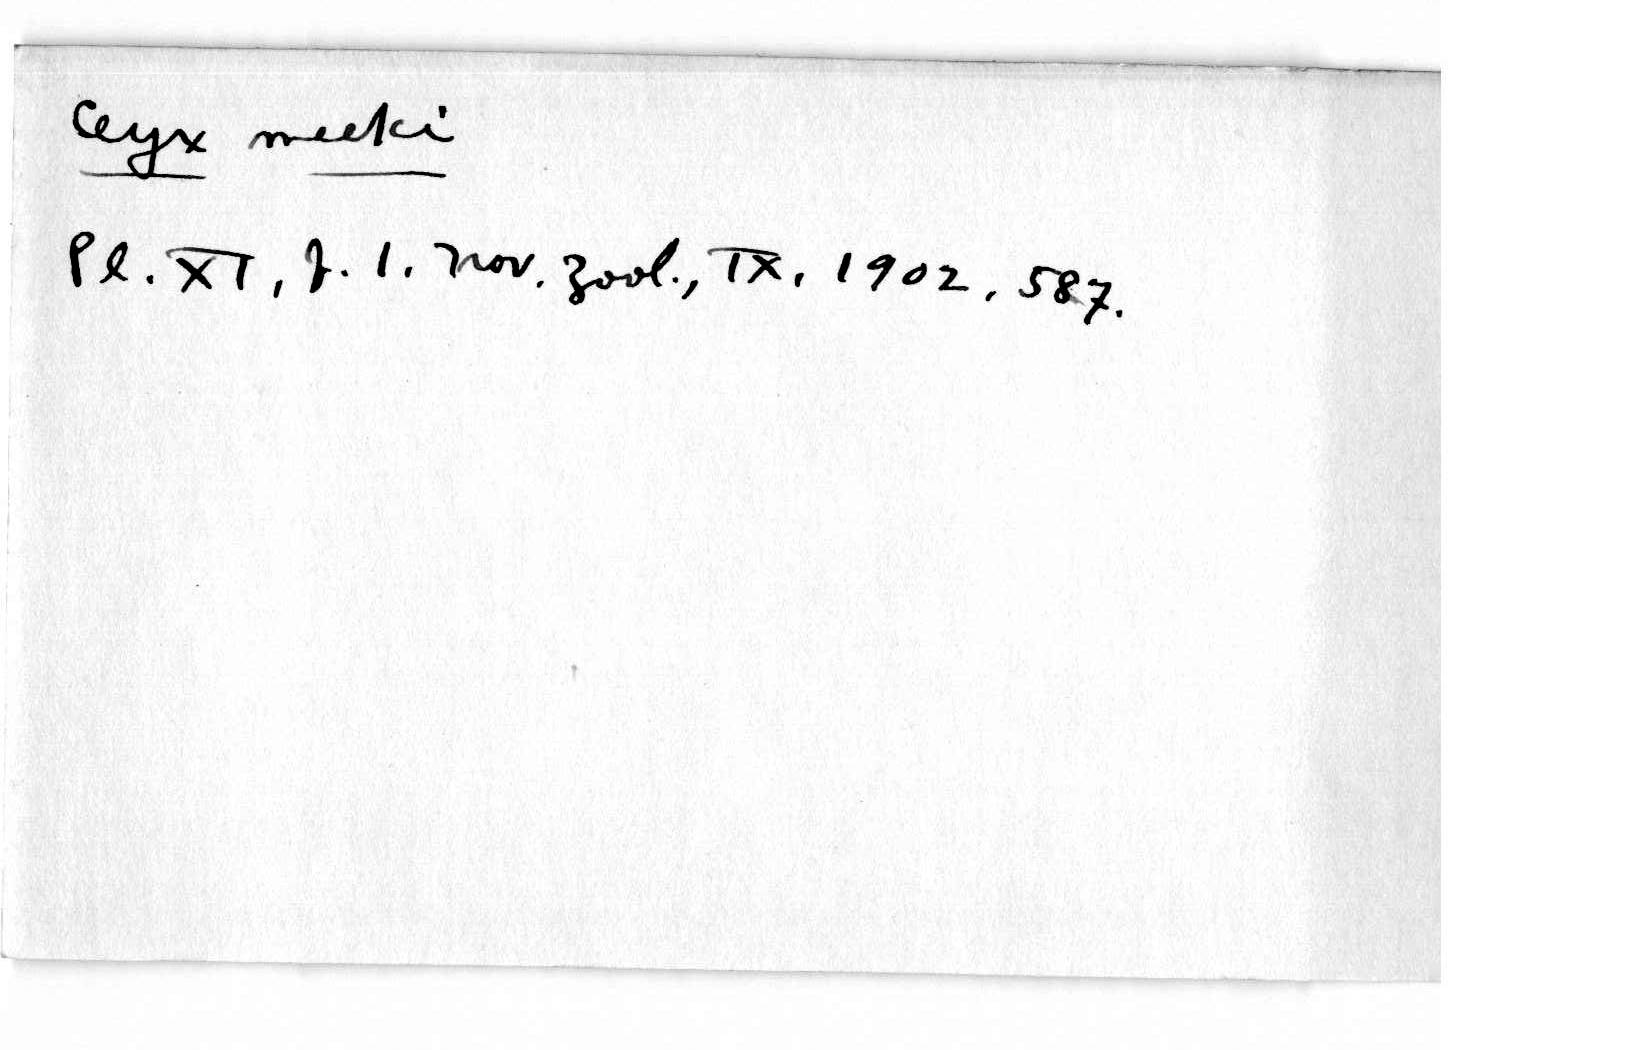 Ceyx meeki
Pl. XI, f. 1. Nov. Zool., IX, 1902, 587.